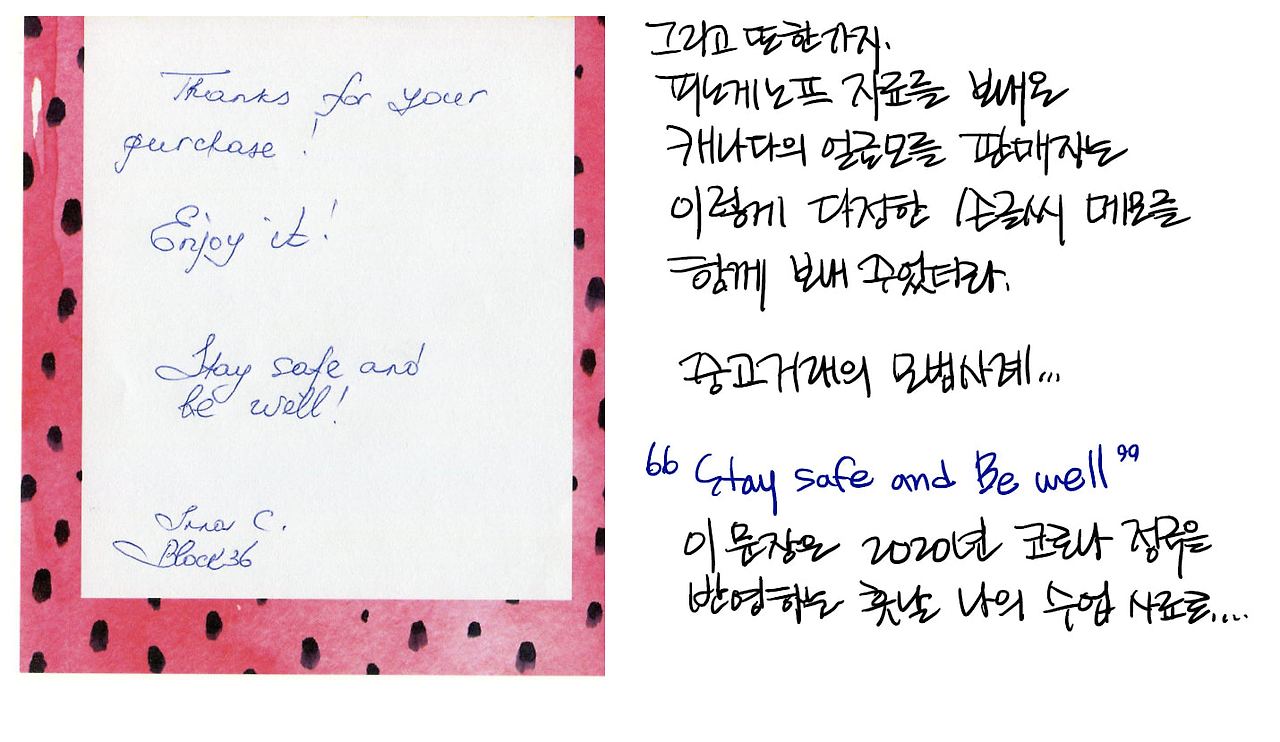 Thanks for your
purchase!
Enjoy it!
Stay safe and
be well!
Inna C.
Block36
그리고 또한가지.
피노게노프 자료를 보내온
캐나다의 얼굴모를 판매자는
이렇게 다정한 손글씨 메모를
함께 보내 주었더라.
중고거래의 모범사례...
“Stay safe and Be well”
이 문장은 2020년 코로나 정국을
반영하는 훗날 나의 수업 사료로....